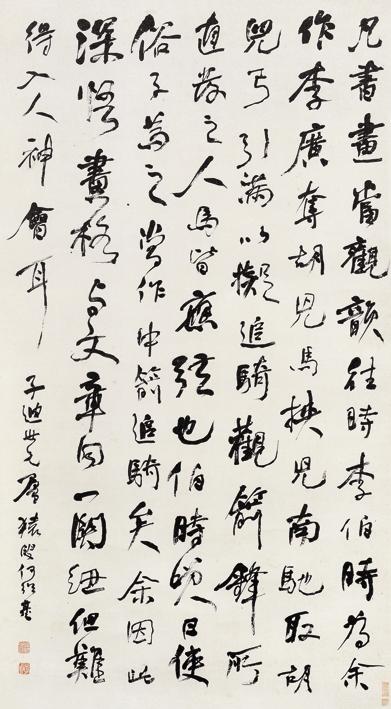 凡書畫當觀韻往時李伯時為余
作李廣奪胡兒馬挾兒南馳取胡
兒弓引滿以擬追騎觀箭鋒所
直發之人馬皆應弦也伯時笑曰使
俗子為之當作中箭追騎矣余因此
深悟畫格与文章同一關紐但難
得入人神會耳
子迪世兄屬猨叟何紹基